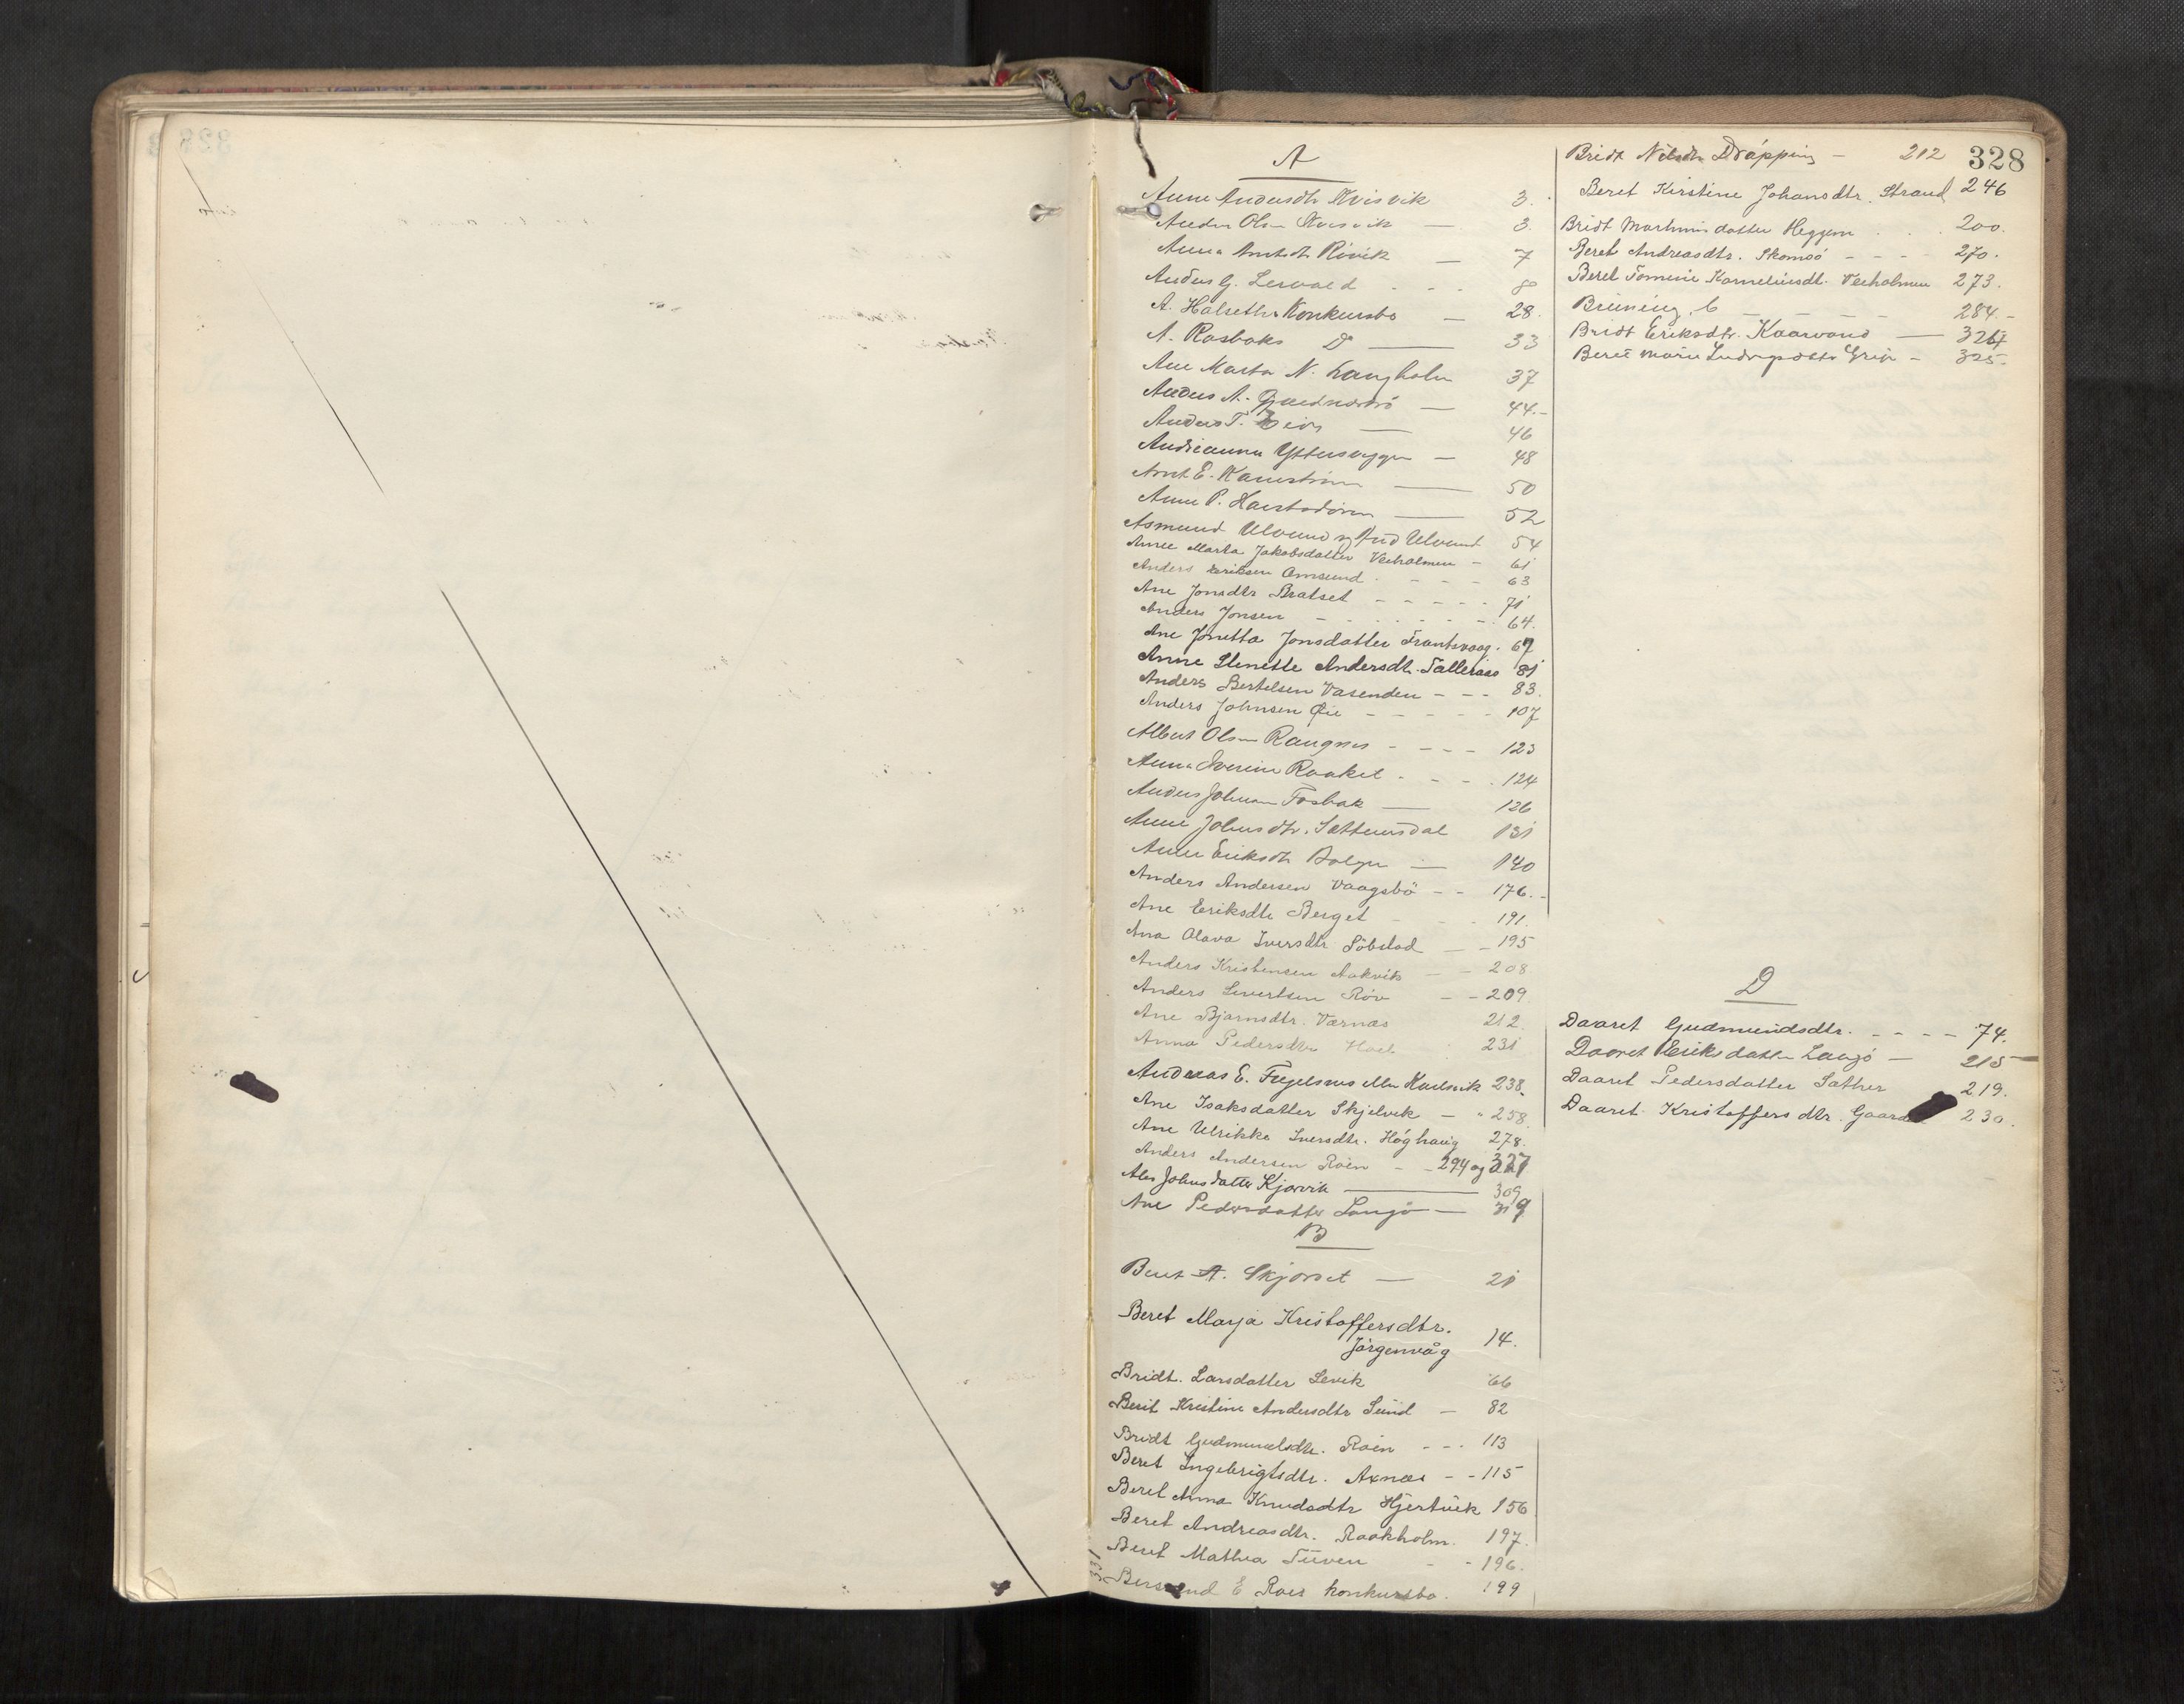 328
A
Anne Andersdtr Kvisvik 3.
Anders Olsen Kvisvik — 3.
Anna Arntsdt Rövik — 7
Anders G. Lervold - - - 8
A. Halseths Konkursbo — 28.
A. Rasboks D — 33
Ane Marta N. Langholm 37
Anders A. — 44.-
Anders T. — 46
Andreanna — 48
Arnt E. — 50
Anne P. — 52
Asmund Ulvund og Ulvund 54
Anne Marta Jakobsdatter Veiholmen - 61
Anders Eriksen Omsund - - - - 63
Ane Jonsdtr Bratset - - - - - 71
Anders Jonsen - - - - - - 64.
Ane Jonetta Jonsdatter Frantsvaag. 67
Anne Stenette Andersdtr. Talleraas 81
Anders Bertelsen Vasenden - - - 83.
Anders Johnsen Öie - - - - - 107
Albert Olsen Raugnes - - - - 123
Anna Iverine Raaket - - - . 124
Anders Johnsen Fosbak — 126
Anne Johnsdtr. Settemsdal 131
Anne Eriksdtr Bolgen — 140
Anders Andersen Vaagsbö - - 176.-
Ane Eriksdtr Berget - - - 191.
Ana Olava Iversdtr Söbstad — - 195
Anders Kristensen Aakvik — - 208
Anders Sivertsen Röv - - 209.
Ane Bjarnsdtr. Værnæs 212.
Anna Pedersdtr Hoel 231
Andreas E. Fugelsnes eller Karlsvik 238.
Ane Isaksdatter Skjelvik — " 258.
Ane Ulrikke Iversdtr. Höghaug 278.
Anders Andersen Roen - - 294 og 327
Ales Johnsdatter Kjørvik — 309
Ane Pedersdatter Langö — 319
B
Beret A. Skjorset — 21
Beret Marja Kristoffersdtr.
Jörgenvåg 14.
Bridt. Larsdatter Levik 66
Berit Kristine Andersdtr Sund — 82
Bridt Gudmundsdtr. Roen - - - 113
Beret Ingebrigtsdtr. Axnæs - - 115
Beret Anna Knudsdtr Hjertvik 156
Beret Andreasdtr. Raakholm. 197.
Beret Mathea Tüven - - 196.
E Roes konkursbo. 199
331
Bridt Nilsdtr Dräpping - 212
Beret Kirstine Johansdtr. Strand 246
Bridt Martinusdatter Heggem . . . 200.
Beret Andreasdtr. Skomsö - - - - 270.
Beret Tomine Korneliusdt. Veiholmen 273.
Brüning, C — — - - 284.-
Bridt Eriksdtr. Kaarvand — 326
Beret Marie Ludvigsdtr Grip - 325.
D
Daaret Gudmundsdtr. - - - - 74.
Daaret Eriksdatter Langö — 215
Daaret Pedersdatter Sæther 219.
Daaret Kristoffersdtr. 230.